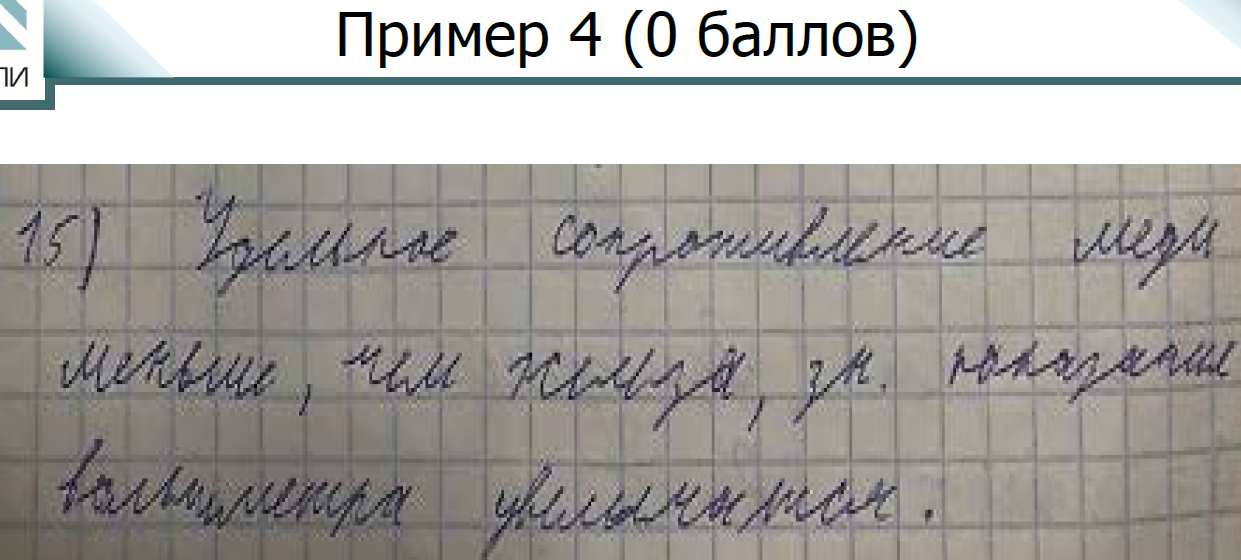 Пример 4 (0 баллов)
ли
15) Удельное сопротивление меди
меньше, чем железа, зн. показание
вольтметра